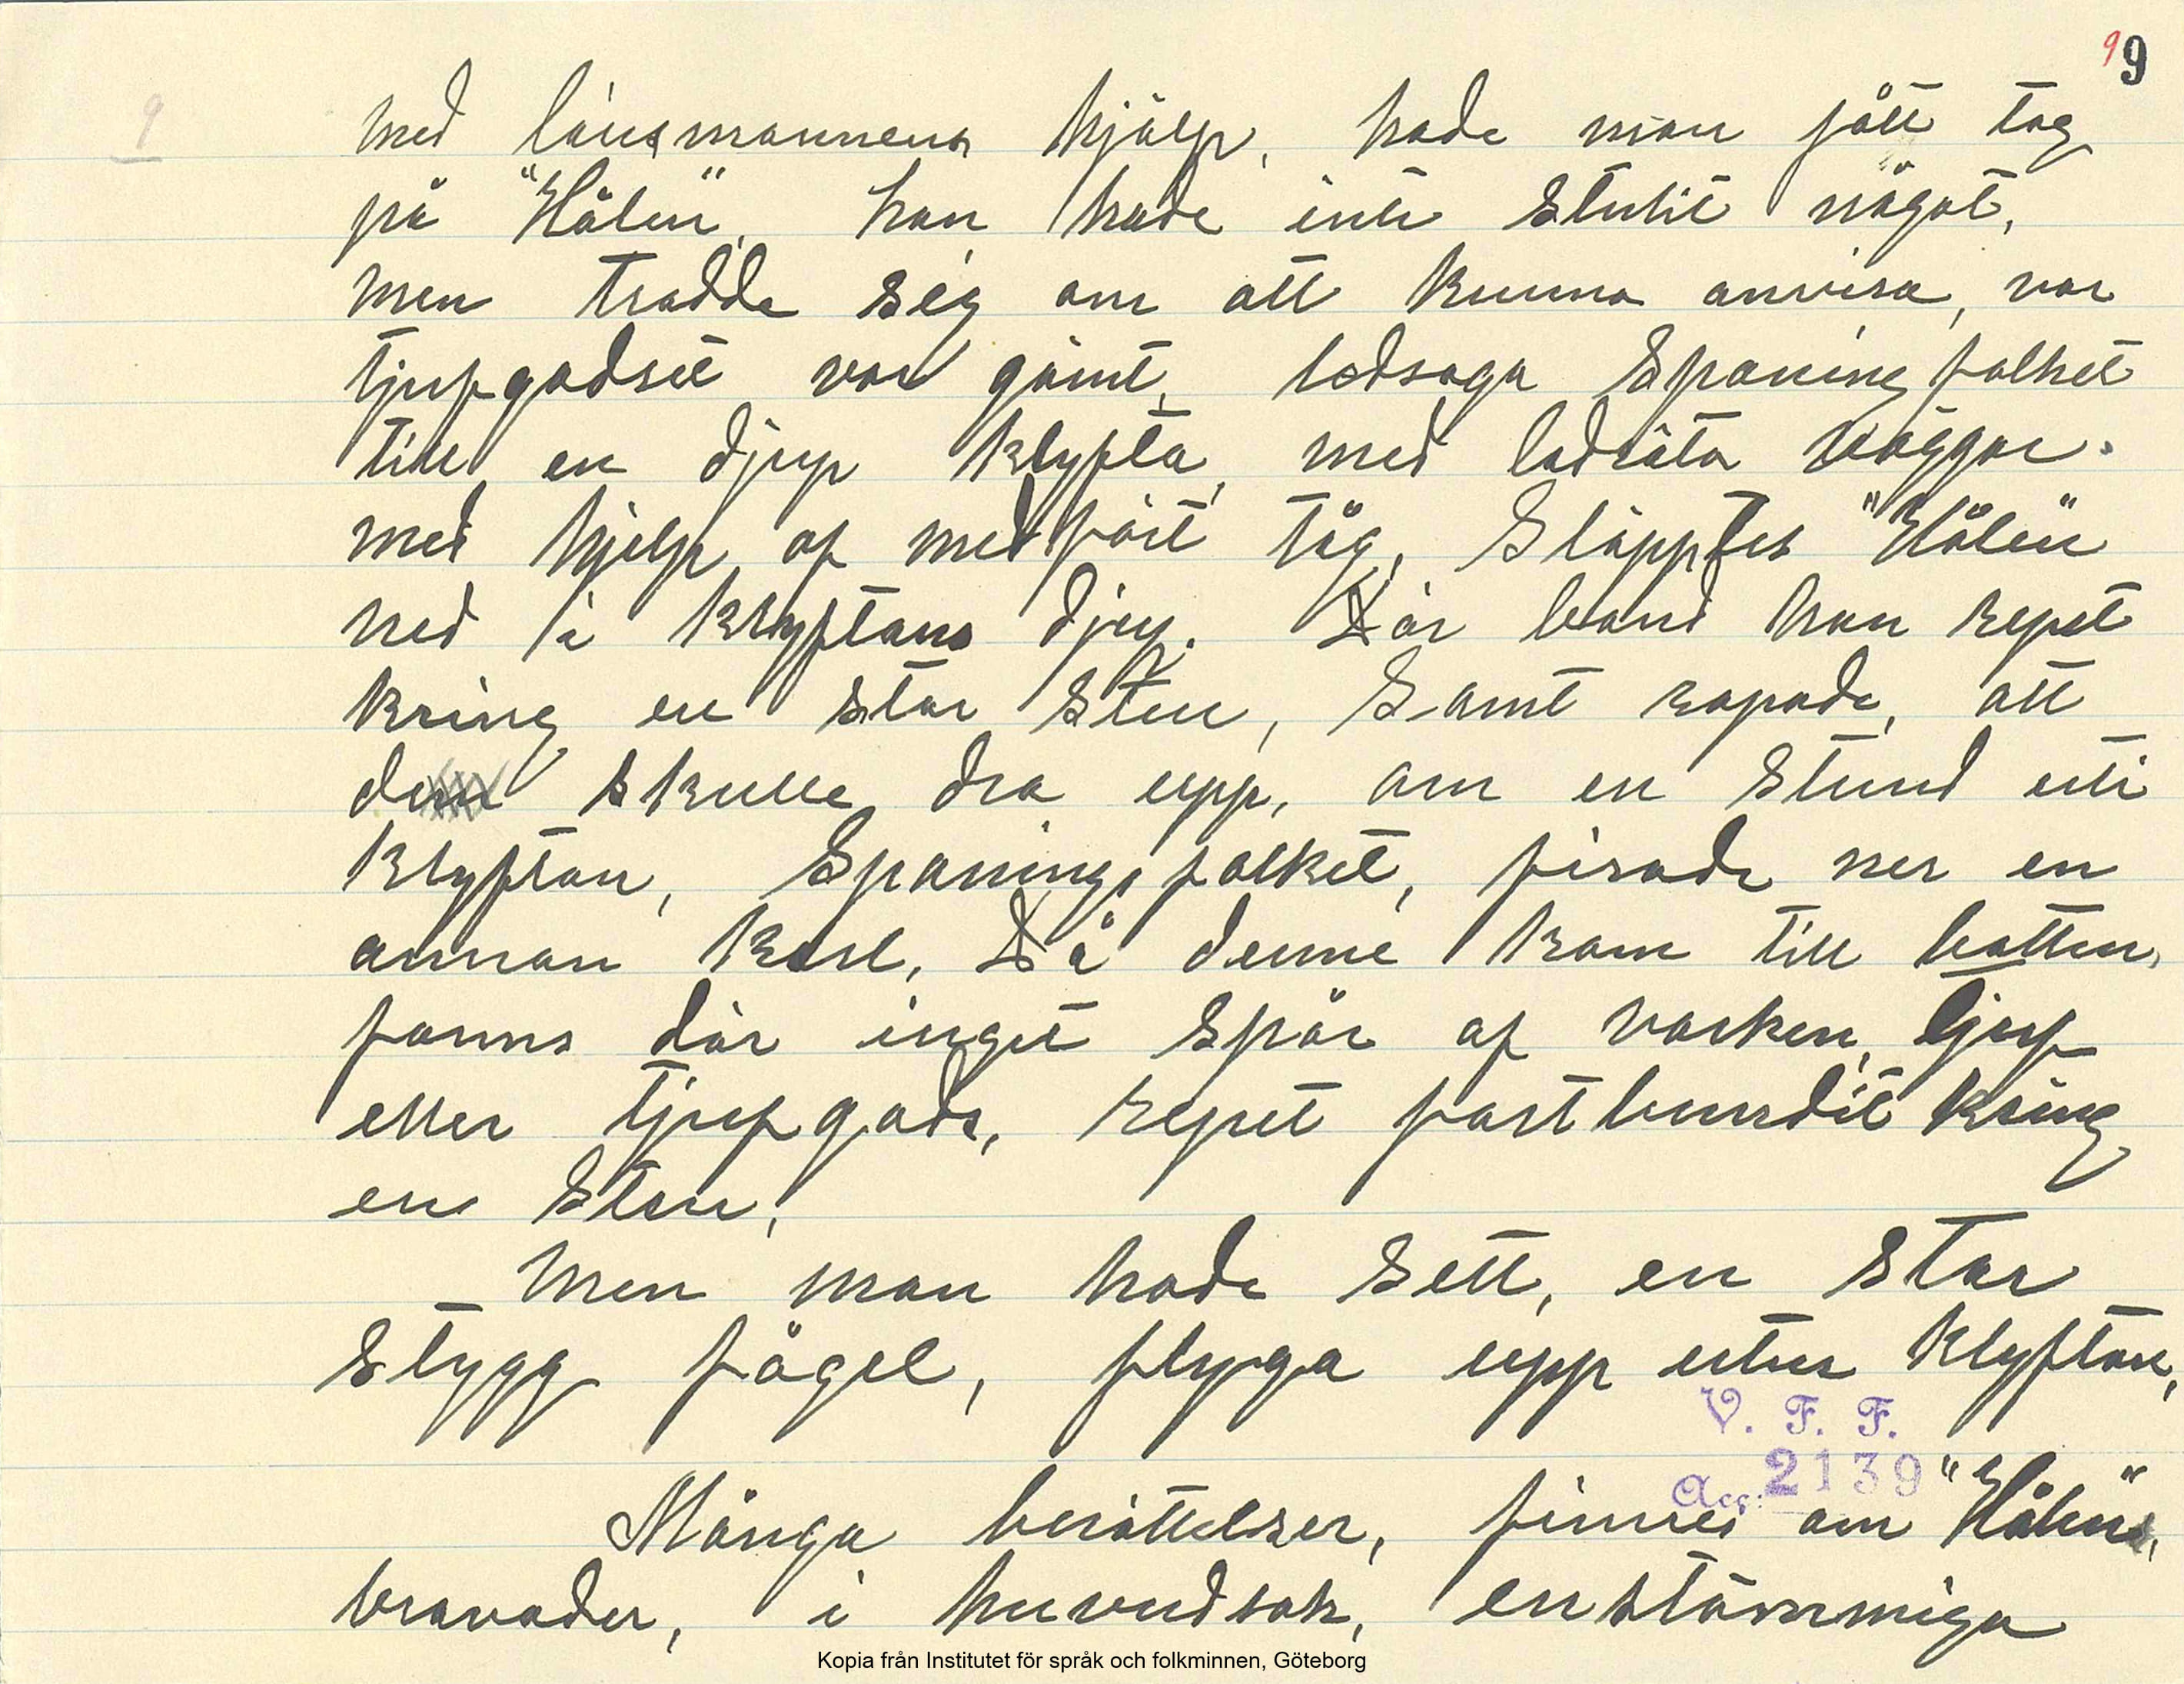 9 9
9
med länsmannens hjälp, hade man fått tag
på "Hålen", han hade inte stulit något,
men trodde sig om att kunna anvisa, var
tjufgodset var gömt, ledsaga Spaningfolket
till en djup klyfta, med lodräta väggar.
med hjelp af medfört tåg, Släpptes "Hålen"
ned i klyftans djup. Där band han repet
kring en stor Sten, Samt ropade, att
de skulle dra upp, om en Stund uti
klyftan, Spaningsfolket, firade ner en
annan karl, Då denne kom till botten,
fanns där inget Spår af varken, tjuf
eller tjufgods, repet fastbundit kring
en Sten,
Men man hade Sett, en Stor
Stygg fågel, flyga upp utur klyftan,
V. F. F.
Acc: 2139
Många berättelser, finnes om "Hålens",
bravader, i huvudsak, enstämmiga
Kopia från Institutet för språk och folkminnen, Göteborg